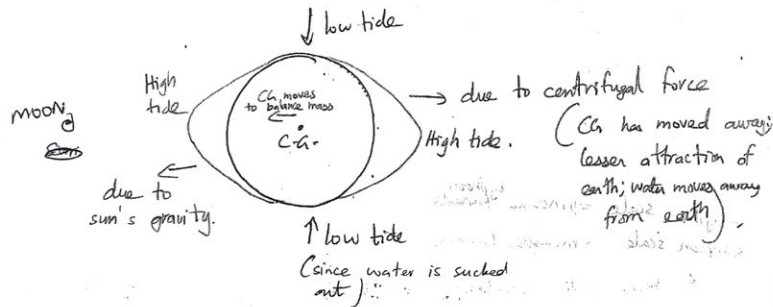 ↓ low tide
High
tide
MOON
CG moves
to balance mass
C.G.
→ due to centrifugal force
High tide.
(CG has moved away;
lesser attraction of
earth; water moves away
from earth).
due to
sun's gravity.
↑ low tide
(since water is sucked
out)